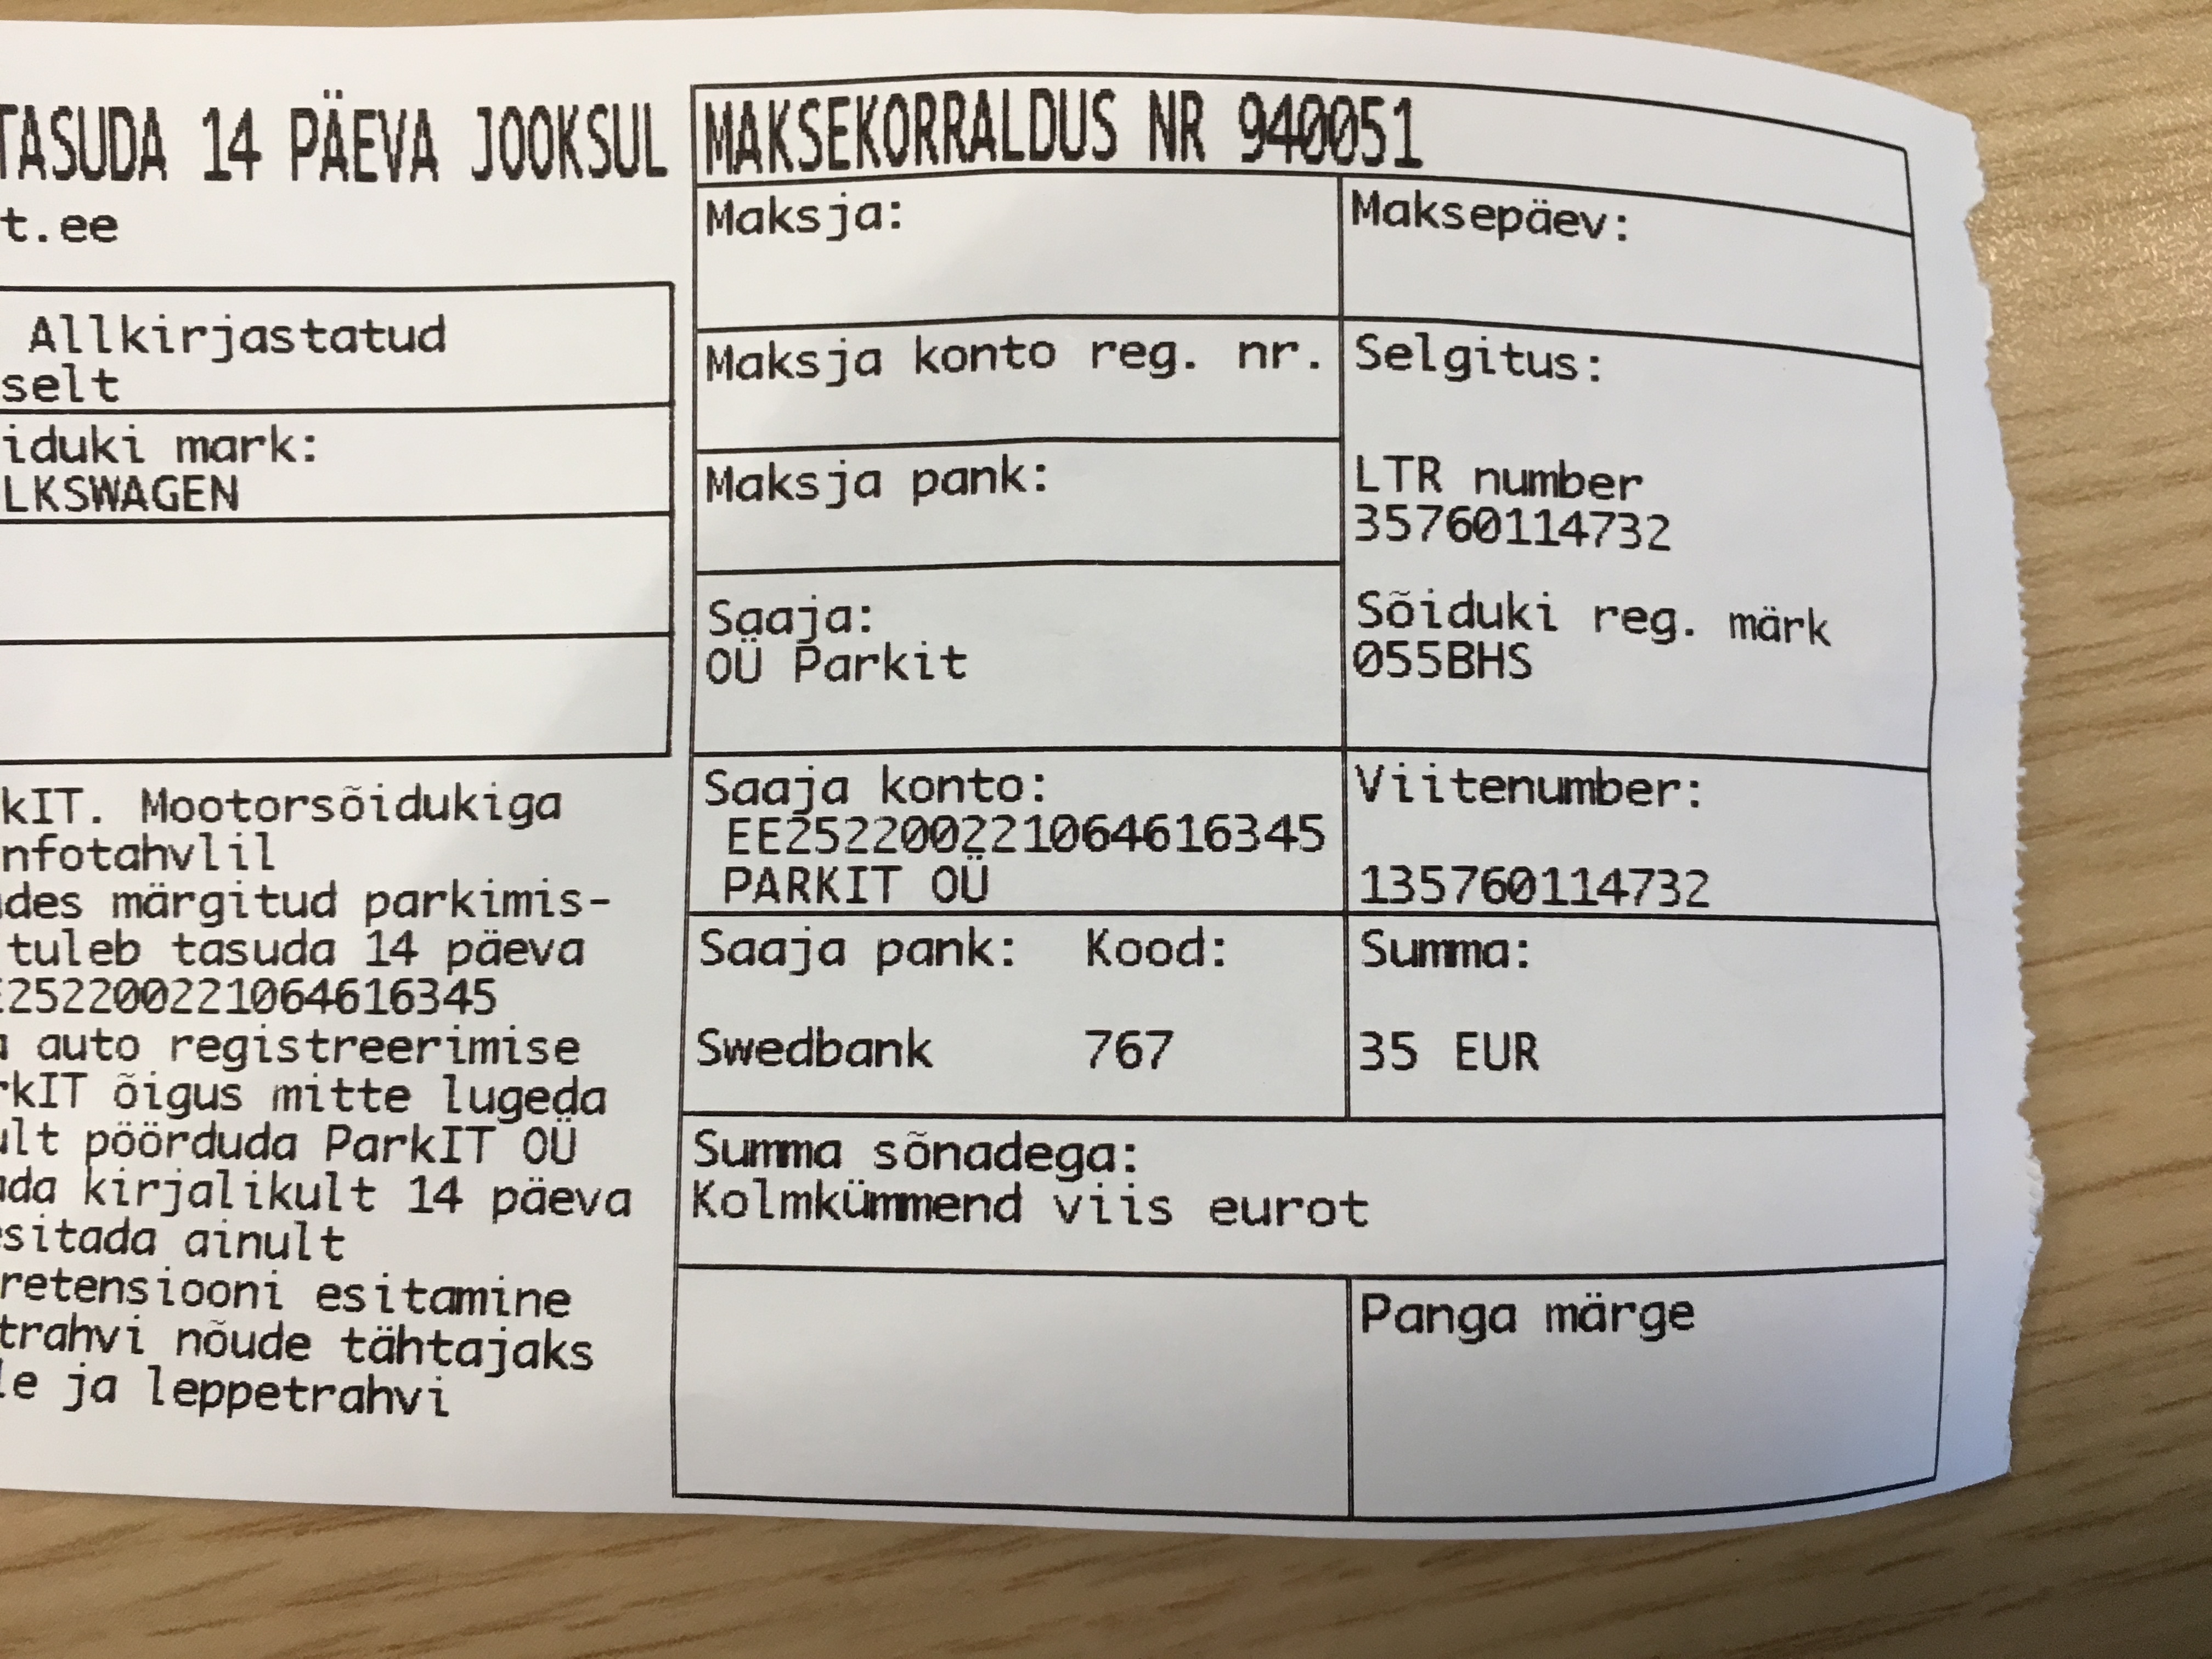 TASUDA 14 PÄEVA JOOKSUL
t.ee
Allkirjastatud
selt
iduki mark:
LKSWAGEN
kIT. Mootorsõidukiga
nfotahvlil
des märgitud parkimis-
tuleb tasuda 14 päeva
E252200221064616345
auto registreerimise
rkIT õigus mitte lugeda
ult pöörduda ParkIT OÜ
da kirjalikult 14 päeva
esitada ainult
retensiooni esitamine
trahvi nõude tähtajaks
le ja leppetrahvi
MAKSEKORRALDUS NR 940051
Maksja:
Maksepäev:
Maksja konto reg. nr.
Selgitus:
Maksja pank:
LTR number
35760114732
Saaja:
OÜ Parkit
Sõiduki reg. märk
055BHS
Saaja konto:
EE252200221064616345
PARKIT OÜ
Viitenumber:
135760114732
Saaja pank: Kood:
Swedbank 767
Summa:
35 EUR
Summa sõnadega:
Kolmkümmend viis eurot
Panga märge